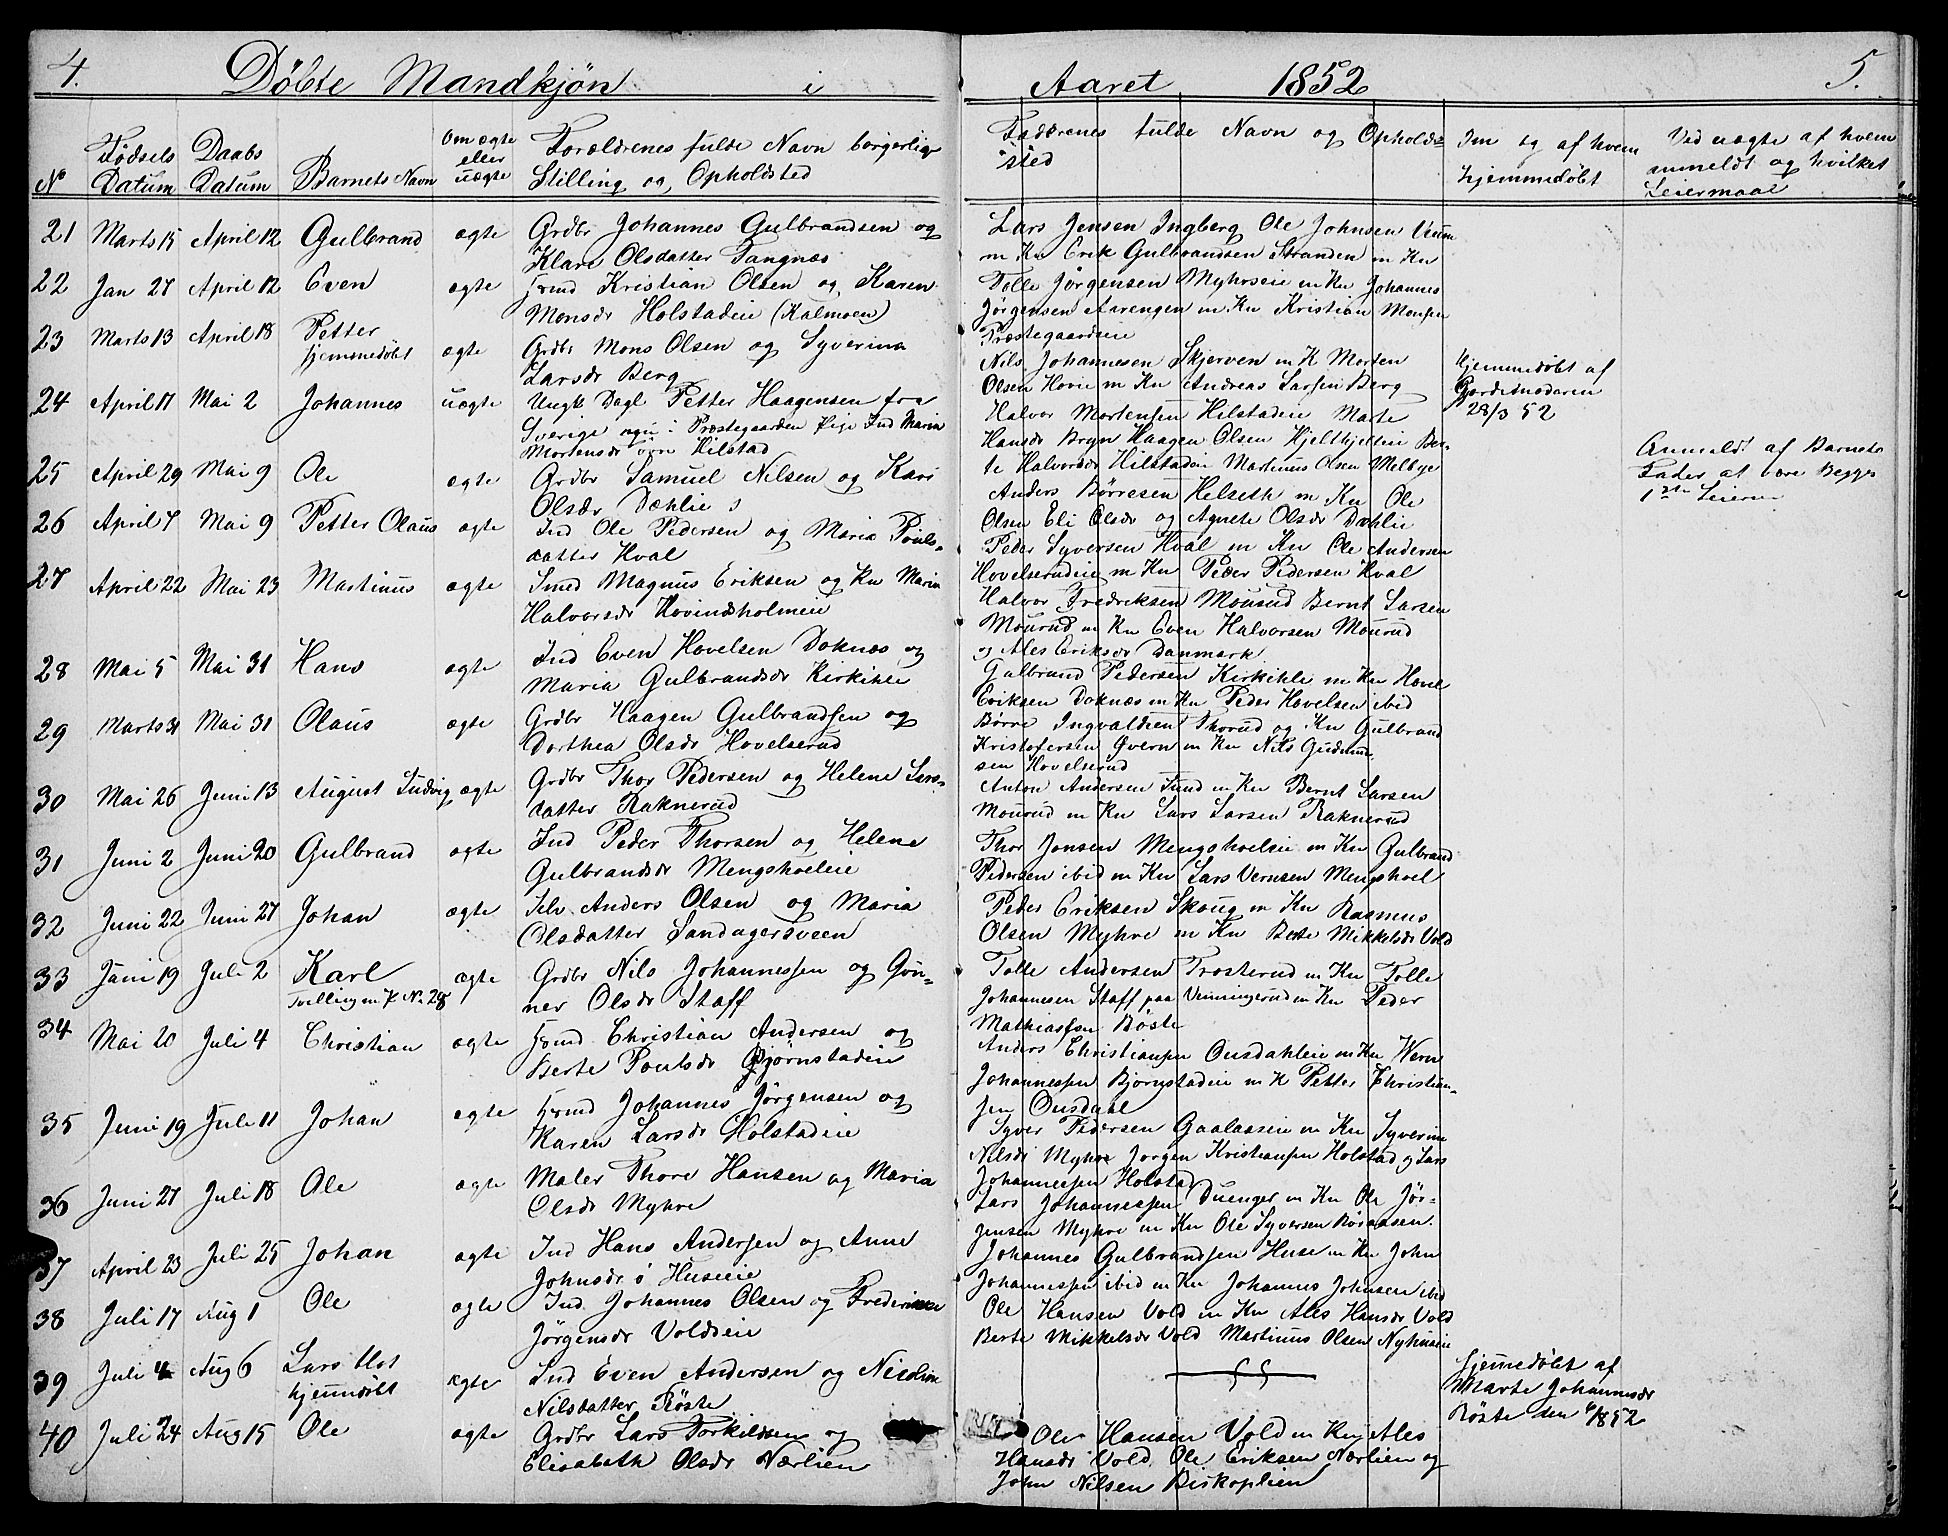 4.
Döbte Mandkjön i
Aaret 1852
5.
No
Födsels Datum
Daabs Datum
Barnets Navn
Om ægte eller uægte
Forældrenes fulde Navn borgerlige
Stilling og Opholdsted
Faddrenes fulde Navn og Opholds-
sted
Om og af hvem
hjemmedöbt
Ved uægte af hvem
anmeldt og hvilket
Leiermaal
21 Marts 15 April 12 Gulbrand ægte Grdbr Johannes Gulbrandsen og
Klare Olsdatter Tangnæs
Lars Jensen Ingberg Ole Johnsen Vium
m Kn Erik Gulbrandsen Stranden m Kn
22 Jan 27 April 12 Even ægte Hmd Kristian Olsen og Karen
Monsdr Holstadeie (Kalmoen)
Tolle Jörgensen Myhrseie m Kn Johannes
Jörgensen Aarengen m Kn Kristian Monsen
Præstegaardseie
23 Marts 13 April 18 Petter
hjemmedöbt ægte Grdbr Mons Olsen og Syverine
Larsdr Berg
Nils Johannesen Skjerven m K Morten
Olsen Hovie m Kn Andreas Larsen Berg
Hjemmedöbt af
Gjordemoderen
28/3 52
24 April 17 Mai 2 Johannes uægte Ungk Dagl Petter Haagensen fra
Sverige nyu i Præstegaarden Pige Ind Maria
Mortensdr Hilstad
Halvor Mortensen Hilstadeie Marte
Hansdr Bryn Haagen Olsen Hjelthjelteie Ber-
te Halvorsdr Hilstadeie Martinus Olsen Melbye
Anmeldt af Barnets
Fader at være Begges
1ste Leierm
25 April 29 Mai 9 Ole ægte Grdbr Samuel Nilsen og Kari
Olsdr Dæhlie
Anders Börresen Helseth m Kn Ole
Olsen Eli Olsdr og Agnete Olsdr Dæhlie
26 April 7 Mai 9 Petter Olaus ægte Ind Ole Pedersen og Maria Pouls-
datter Hval
Peder Syversen Hval m Kn Ole Andersen
Hovelserudeie m Kn Peder Pedersen Hval
27 April 22 Mai 23 Martinus ægte Smed Magnus Eriksen og Kn Maria
Halvorsdr Hovindsholmeie
Halvor Fredriksen Mourud Bernt Larsen
Mourud m Kn Even Halvorsen Mourud
og Ales Eriksdr Danmark
28 Mai 5 Mai 31 Hans ægte Ind Even Hovelsen Doknæs og
Maria Gulbrandsdr Kirkihle
Gulbrand Pedersen Kirkihle m Kn Hovel
Eriksen Doknæs m Kn Peder Hovelsen ibid
29 Marts 31 Mai 31 Olaus ægte Grdbr Haagen Gulbrandsen og
Dorthea Olsdr Hovelserud
Börre Ingvaldsen Thorud og Kn Gulbrand
Kristofersen Övern m Kn Nils Gudmun
sen Hovelserud
30 Mai 26 Juni 13 August Ludvig ægte Grdbr Thor Pedersen og Helene Lars-
datter Raknerud
Anton Andersen Sund m Kn Bernt Larsen
Mourud m Kn Lars Larsen Raknerud
31 Juni 2 Juni 20 Gulbrand ægte Ind Peder Thorsen og Helene
Gulbrandsdr Mengshoeleie
Thor Jonsen Mengshoelseie m Kn Gulbrand
Pedersen ibid m Kn Lars Vernsen Mengshoel
32 Juni 22 Juni 27 Johan ægte Selv Anders Olsen og Maria
Olsdatter Sandagersveen
Peder Eriksen Skoug m Kn Rasmus
Olsen Myhre m Kn Berte Mikkelsdr Vold
33 Juni 19 Juli 2 Karl
Tvilling m P No 28 ægte Grdbr Nils Johannessen og Gun-
ner Olsdr Staff
Tolle Andersen Trosterud m Kn Tolle
Johannesen Staff paa Venningerud m Kn Peder
Mathiassen Böste
34 Mai 20 Juli 4 Christian ægte Hmd Christian Andersen og
Berte Poulsdr Bjørnstadeie
Anders Christiansen Ousdahleie m Kn Wern
Johannessen Bjørnstadeie m K Petter Christian-
sen Ousdahl
35 Juni 19 Juli 11 Johan ægte Hmd Johannes Jörgensen og
Karen Larsdr Holstadeie
Syver Pedersen Gaalaaseie m Kn Syverine
Nilsdr Myhre Jörgen Kristiansen Holstad og Lars
Johannessen Holstad
36 Juni 27 Juli 18 Ole ægte Maler Thore Hansen og Maria
Olsdr Myhre
Lars Johannessen Duenger m Kn Ole Jör-
gensen Myhre m Kn Ole Syversen Rosaasen
37 April 23 Juli 25 Johan ægte Ind Hans Andersen og Anne
Johnsdr ö Huseeie
Johannes Gulbrandsen Huse m Kn John
Johannessen ibid m Kn Johannes Johnsen ibid
38 Juli 17 Aug 1 Ole ægte Ind Johannes Olsen og Frederikke
Jörgensdr Voldseie
Ole Hansen Vold m Kn Ales Hansdr Vold
Berte Mikkelsdr Vold Martinus Olsen Nyhuseie
39 Juli 4 Aug 6 Lars Mat
hjemmdöbt ægte Ind Even Andersen og Nicoline
Nilsdatter Röste
Hjemmedöbt af
Marte Johannesdr
Röste den 4/7 1852
40 Juli 24 Aug 15 Ole ægte Grdbr Lars Torkildsen og
Elisabeth Olsdr Nærlien
Ole Hansen Vold m Kn Ales
Hansdr Vold Ole Eriksen Nærlien og
John Nilsen Biskoplien